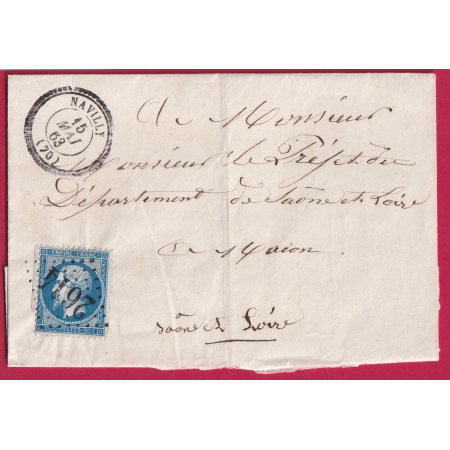 NAVILLY
15
MAI
63
(70)
A Monsieur
Monsieur le Préfet du
Département de Saône et Loire
a Macon
Saône et Loire
EMPIRE FRANC
2614
POSTES 20 C